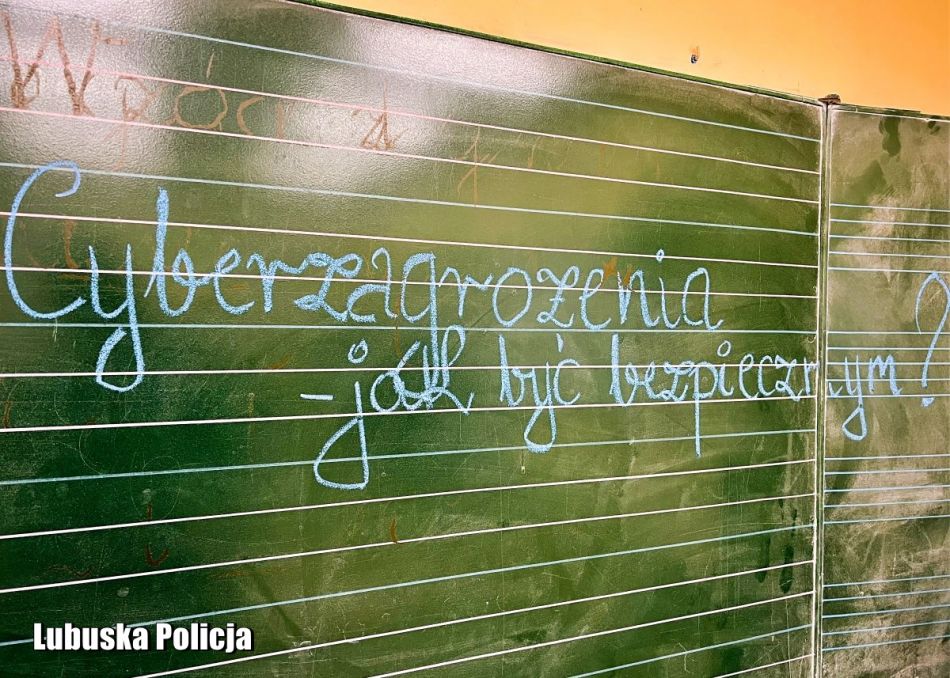 Cyberzagrożenia
- jak być bezpiecznym?
Lubuska Policja